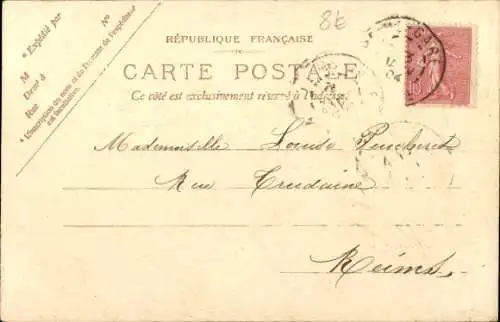 8€
N°
* Expédié par
M
Demt à
Rue
* L'inscription du nom et de l'adresse de l'expéditeur
est facultative.
RÉPUBLIQUE FRANÇAISE
CARTE POSTALE
Ce côté est exclusivement réservé à l'adresse
GARE
Mademoiselle Louise
Rue Trudaine
Reims